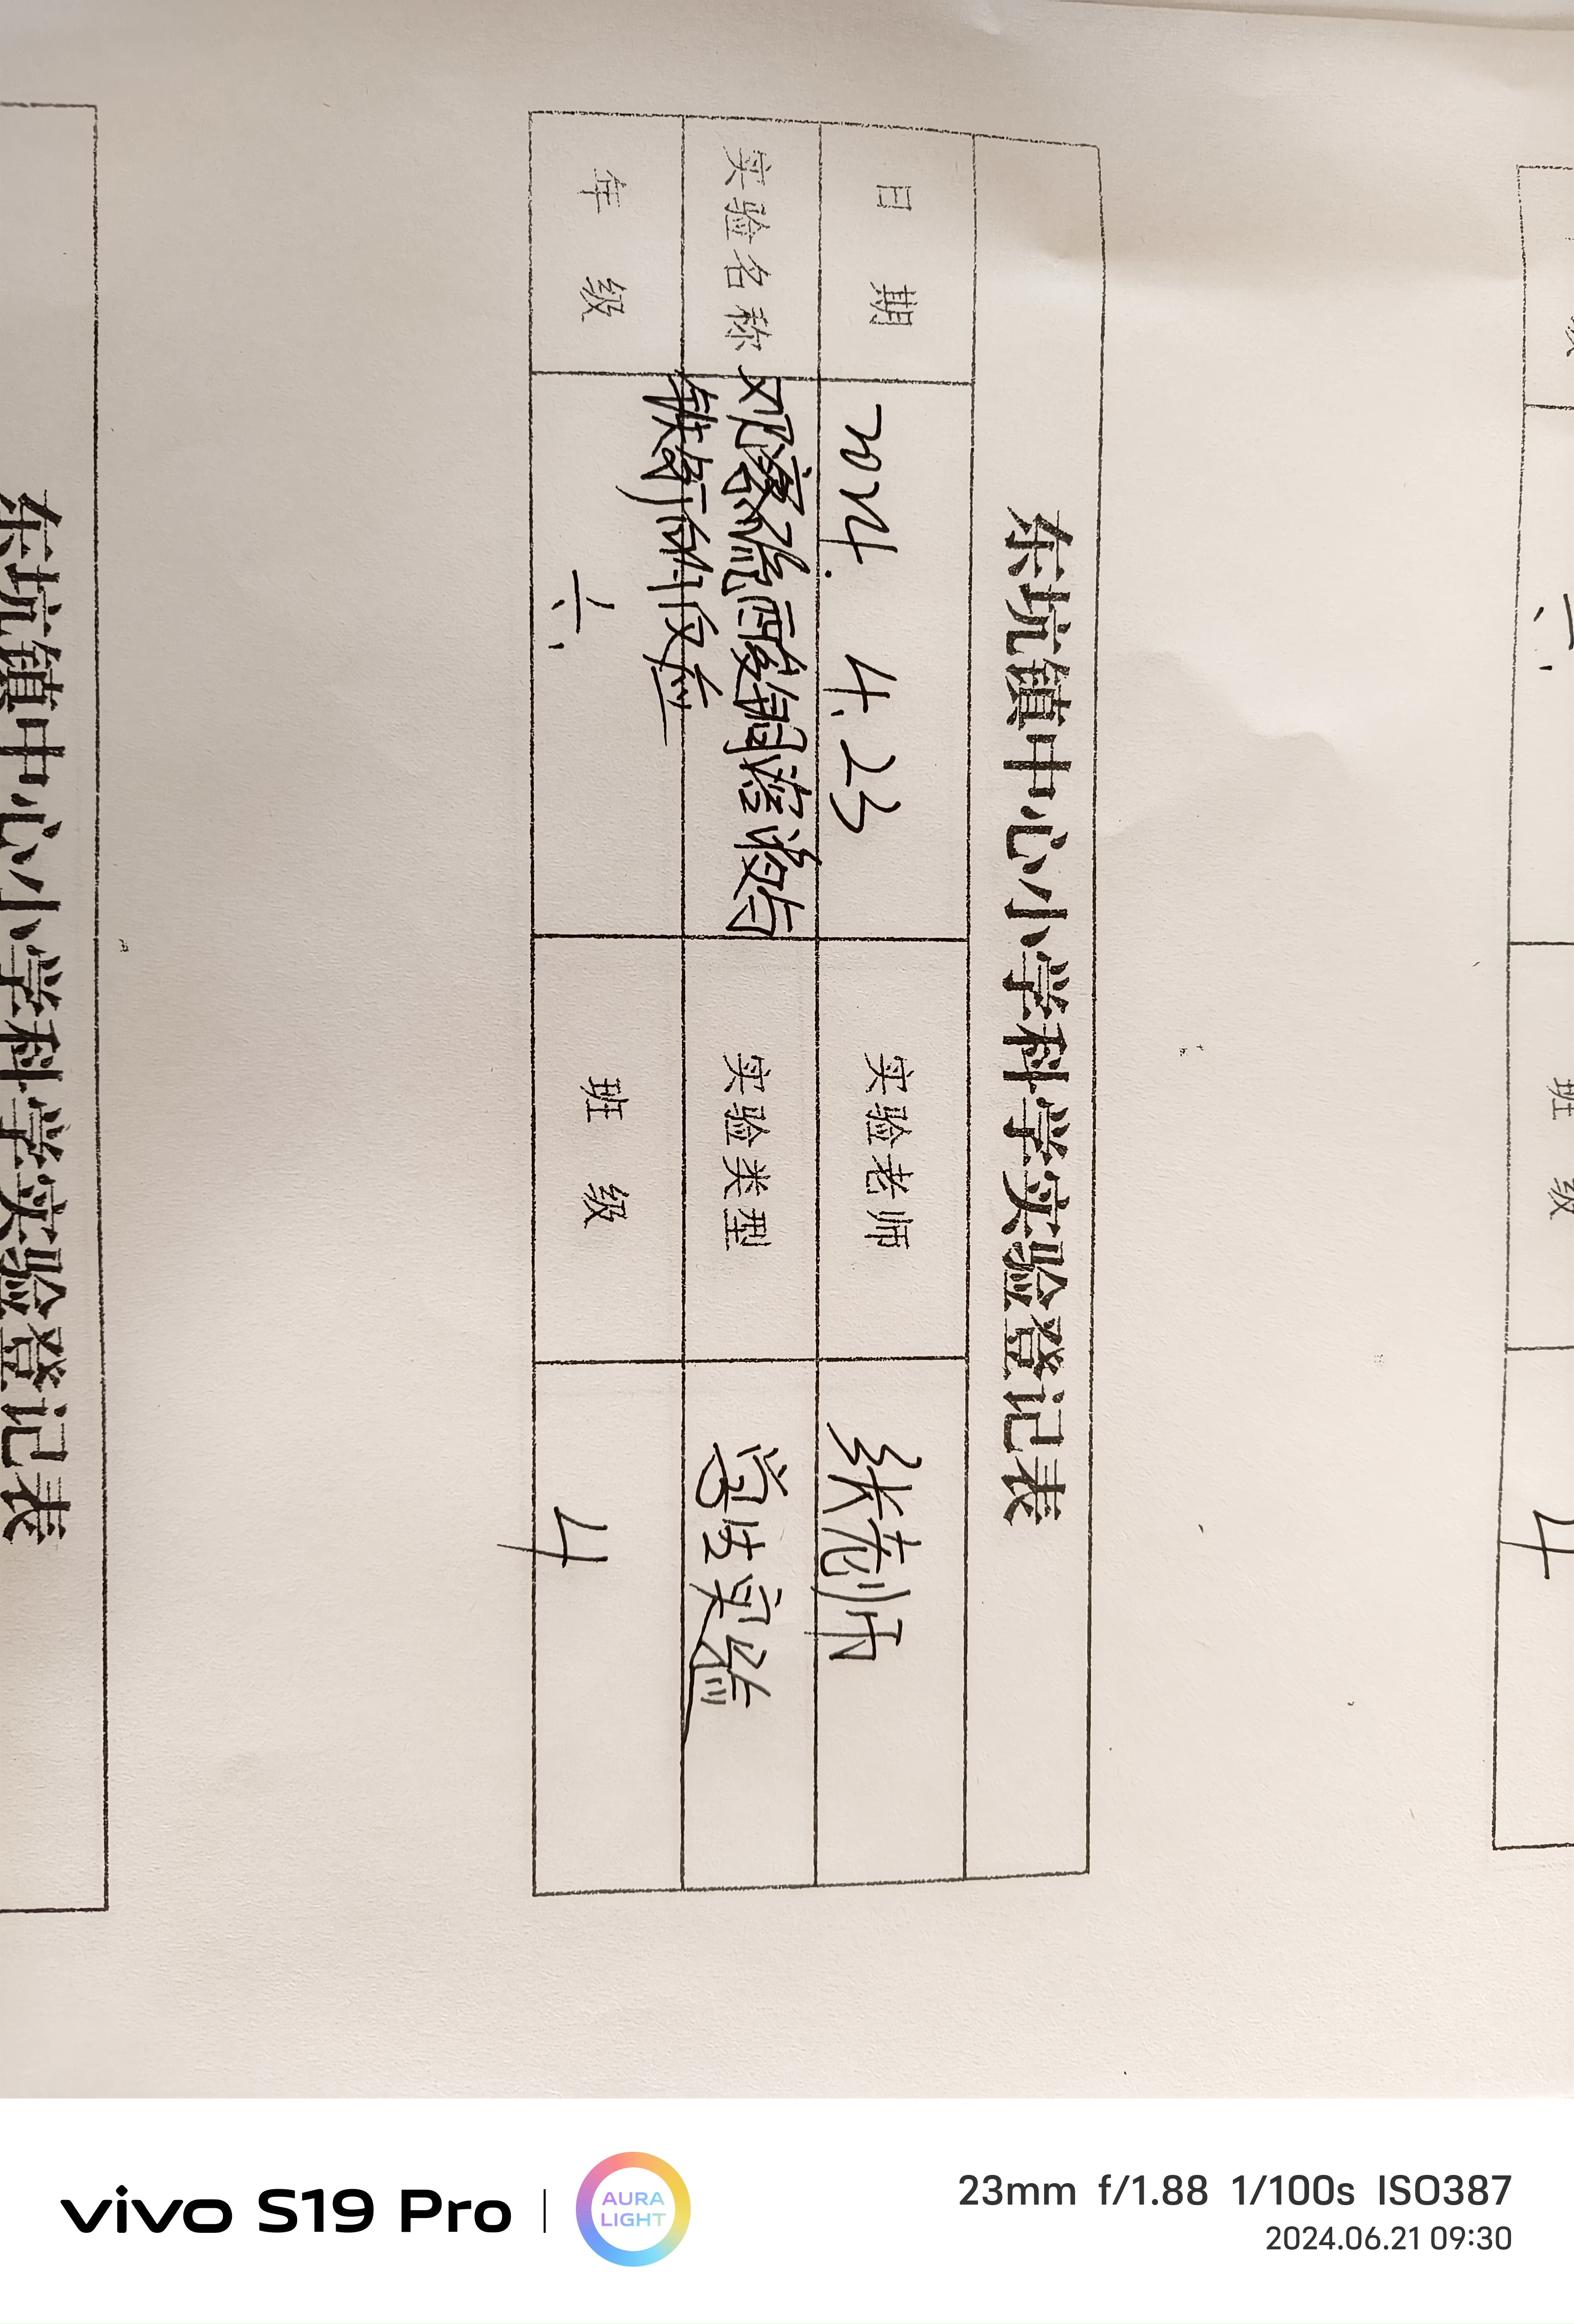 东坑镇中心小学科学实验登记表
日 期 2024. 4. 23 实验老师
实验名称 观察硫酸铜溶液与
铁钉的反应 实验类型 学生实验
年 级 六 班 级 4
东坑镇中心小学科学实验登记表
六
班 级
4
vivo S19 Pro
AURA
LIGHT
23mm f/1.88 1/100s ISO387
2024.06.21 09:30